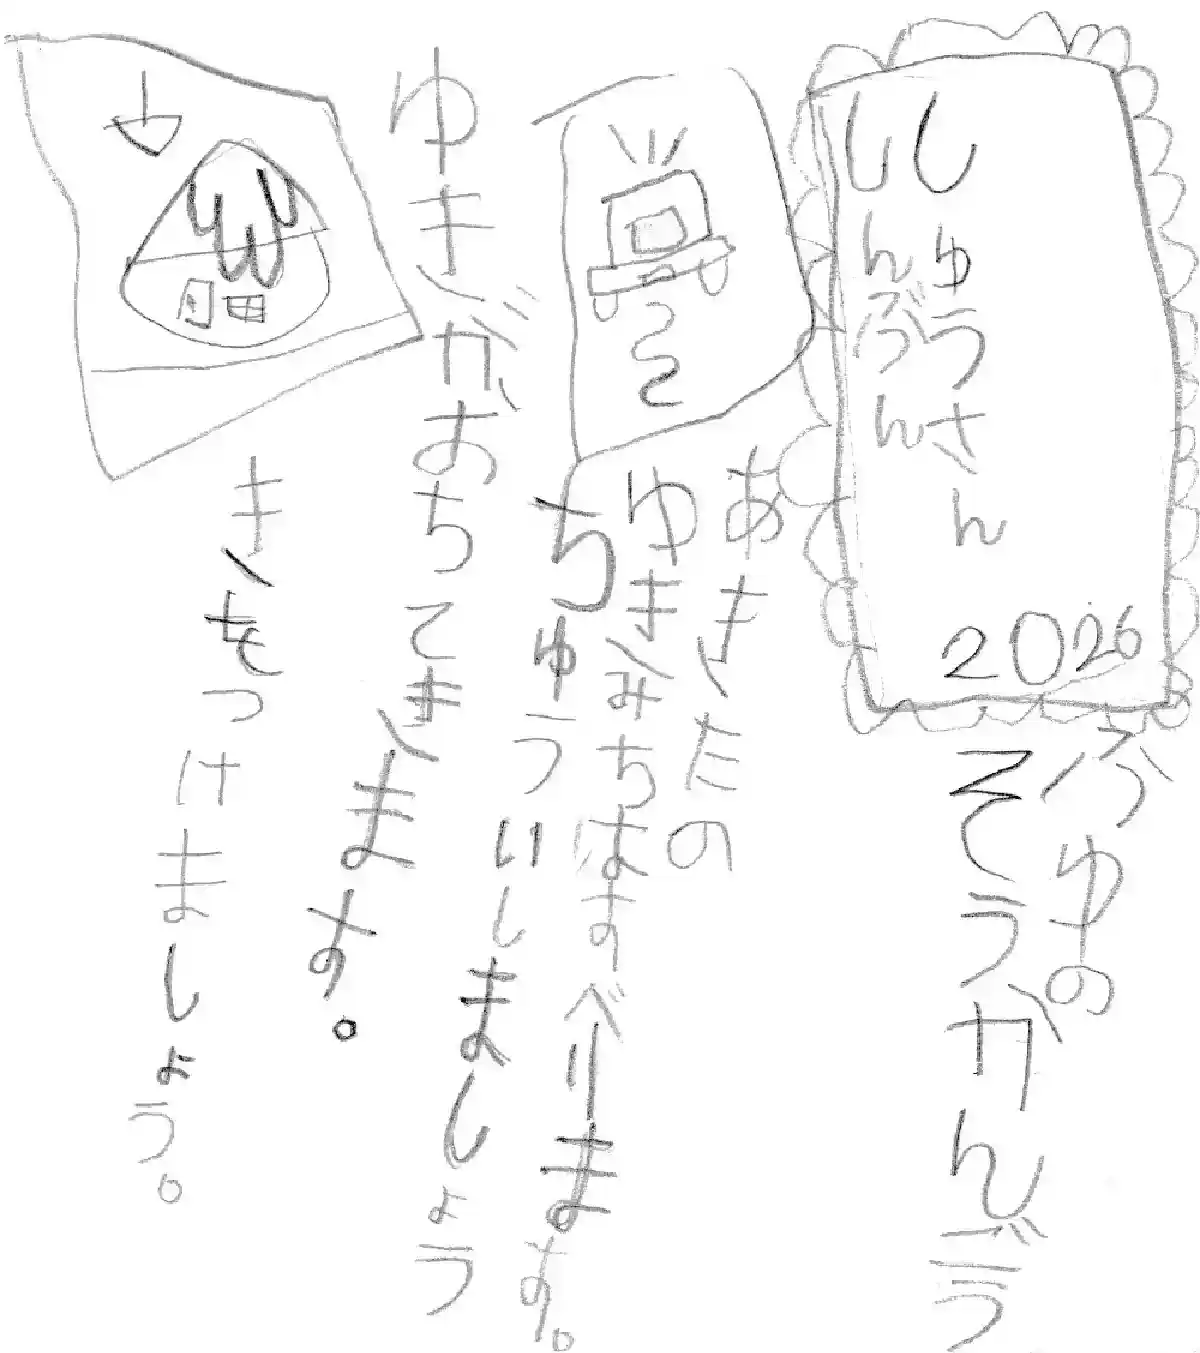 しゅうさん
しんぶん
2026
ふゆの
そうかんごう
あきたの
ゆきみちはすべります。
ちゅういしましょう
ゆきがおちてきます。
きをつけましょう。